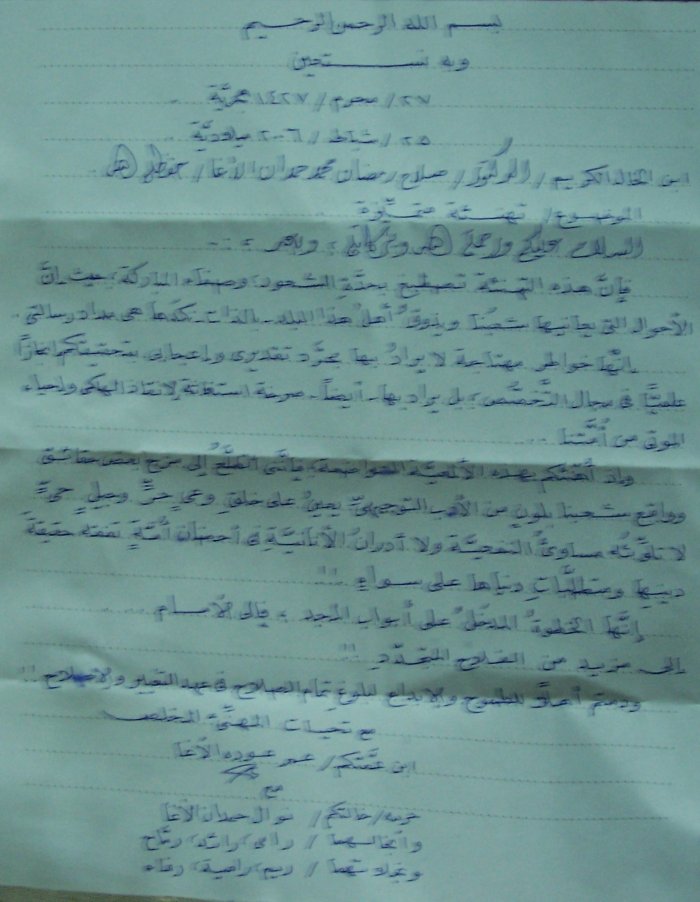 بسم الله الرحمن الرحيم
وبه نستعين
٢٧/ محرم/ ١٤٢٧ هجريَّة
٢٥/ شباط/ ٢٠٠٦ ميلاديَّة
ابن الخال الكريم/ الدكتور/ صلاح رمضان محمد حمدان الأغا/ حفظه الله
الموضوع/ تهنئة متميِّزة
السلام عليكم ورحمة الله وبركاته، وبعد، ..
فإنَّ هذه التهنئة تصطبغ بحدَّةِ الشعور، وصفاء المباركة، حيث إنَّ
الأحوال التي يعانيها شعبُنا ويذوقُ أهلُ هذا البلد - بالذات - نكدَها هي مداد رسالتي.
إنَّها خواطر مهتاجة لا يرادُ بها مجرَّد تقديري وإعجابي بتحقيقكم إنجازًا
علميًّا في مجال التَّخصُّص، بل يراد بها - أيضاً - صرخة استغاثة لإنقاذ الهلكى وإحياء
الموتى من أُمَّتنا ...
وإذ أهنئكم بهذه الألمعيَّة المتواضعة، فإنَّني أتطلَّعُ إلى مزج بعض حقائق
وواقع شعبنا بلونٍ من الأدب التوجيهيِّ يعينُ على خلقِ وعيٍ حرٍّ وجيلٍ حيٍّ
لا تلوِّثُه مساوئُ النفعيَّة ولا أدرانُ الأنانيَّةِ في أحضان أُمَّةٍ تفقه حقيقةَ
دينِها ومتطلَّباتِ دنياها على سواءٍ ..!!
إنَّها الخطوةُ المدخلُ على أبواب المجد، فإلى الأمام .....
إلى مزيد من الفلاح المتجدِّد !!
ودمتم أهلاً للطموح والإبداع لبلوغ تمام الصلاح في عهد التغيير والإصلاح !!
مع تحيات المهنِّئ المخلص
ابن عمَّتكم/ عمر عوده الأغا
مع
حرمه/ خالتكم/ نوال حمدان الأغا
وأنجالهما / رامي، رائد، رمَّاح
وبناتهما / ريم، رامية، رفاء